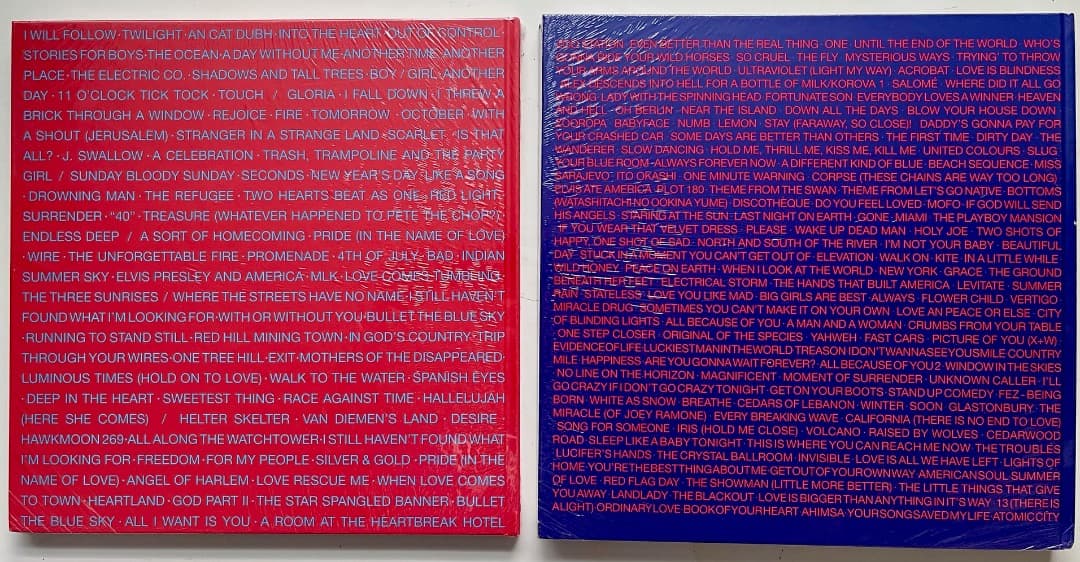 I WILL FOLLOW · TWILIGHT · AN CAT DUBH · INTO THE HEART · OUT OF CONTROL ·
STORIES FOR BOYS · THE OCEAN · A DAY WITHOUT ME · ANOTHER TIME, ANOTHER
PLACE · THE ELECTRIC CO. · SHADOWS AND TALL TREES · BOY / GIRL · ANOTHER
DAY · 11 O'CLOCK TICK TOCK · TOUCH / GLORIA · I FALL DOWN · I THREW A
BRICK THROUGH A WINDOW · REJOICE · FIRE · TOMORROW · OCTOBER · WITH
A SHOUT (JERUSALEM) · STRANGER IN A STRANGE LAND · SCARLET · IS THAT
ALL? · J. SWALLOW · A CELEBRATION · TRASH, TRAMPOLINE AND THE PARTY
GIRL / SUNDAY BLOODY SUNDAY · SECONDS · NEW YEAR'S DAY · LIKE A SONG
· DROWNING MAN · THE REFUGEE · TWO HEARTS BEAT AS ONE · RED LIGHT ·
SURRENDER · "40" · TREASURE (WHATEVER HAPPENED TO PETE THE CHOP?) ·
ENDLESS DEEP / A SORT OF HOMECOMING · PRIDE (IN THE NAME OF LOVE)
· WIRE · THE UNFORGETTABLE FIRE · PROMENADE · 4TH OF JULY · BAD · INDIAN
SUMMER SKY · ELVIS PRESLEY AND AMERICA · MLK · LOVE COMES TUMBLING ·
THE THREE SUNRISES / WHERE THE STREETS HAVE NO NAME · I STILL HAVEN'T
FOUND WHAT I'M LOOKING FOR · WITH OR WITHOUT YOU · BULLET THE BLUE SKY
· RUNNING TO STAND STILL · RED HILL MINING TOWN · IN GOD'S COUNTRY · TRIP
THROUGH YOUR WIRES · ONE TREE HILL · EXIT · MOTHERS OF THE DISAPPEARED ·
LUMINOUS TIMES (HOLD ON TO LOVE) · WALK TO THE WATER · SPANISH EYES
· DEEP IN THE HEART · SWEETEST THING · RACE AGAINST TIME · HALLELUJAH
(HERE SHE COMES) / HELTER SKELTER · VAN DIEMEN'S LAND · DESIRE ·
HAWKMOON 269 · ALL ALONG THE WATCHTOWER · I STILL HAVEN'T FOUND WHAT
I'M LOOKING FOR · FREEDOM · FOR MY PEOPLE · SILVER & GOLD · PRIDE (IN THE
NAME OF LOVE) · ANGEL OF HARLEM · LOVE RESCUE ME · WHEN LOVE COMES
TO TOWN · HEARTLAND · GOD PART II · THE STAR SPANGLED BANNER · BULLET
THE BLUE SKY · ALL I WANT IS YOU · A ROOM AT THE HEARTBREAK HOTEL
STATION · EVEN BETTER THAN THE REAL THING · ONE · UNTIL THE END OF THE WORLD · WHO'S
GONNA RIDE YOUR WILD HORSES · SO CRUEL · THE FLY · MYSTERIOUS WAYS · TRYING' TO THROW
YOUR ARMS AROUND THE WORLD · ULTRAVIOLET (LIGHT MY WAY) · ACROBAT · LOVE IS BLINDNESS
· ALEX DESCENDS INTO HELL FOR A BOTTLE OF MILK/KOROVA 1 · SALOMÉ · WHERE DID IT ALL GO
WRONG · LADY WITH THE SPINNING HEAD · FORTUNATE SON · EVERYBODY LOVES A WINNER · HEAVEN
AND HELL · OH BERLIN · NEAR THE ISLAND · DOWN ALL THE DAYS · BLOW YOUR HOUSE DOWN ·
ZOOROPA · BABYFACE · NUMB · LEMON · STAY (FARAWAY, SO CLOSE)! · DADDY'S GONNA PAY FOR
YOUR CRASHED CAR · SOME DAYS ARE BETTER THAN OTHERS · THE FIRST TIME · DIRTY DAY · THE
WANDERER · SLOW DANCING · HOLD ME, THRILL ME, KISS ME, KILL ME · UNITED COLOURS · SLUG ·
YOUR BLUE ROOM · ALWAYS FOREVER NOW · A DIFFERENT KIND OF BLUE · BEACH SEQUENCE · MISS
SARAJEVO · ITO OKASHI · ONE MINUTE WARNING · CORPSE (THESE CHAINS ARE WAY TOO LONG) ·
ELVIS ATE AMERICA · PLOT 180 · THEME FROM THE SWAN · THEME FROM LET'S GO NATIVE · BOTTOMS
(WATASHITACHI NO OOKINA YUME) · DISCOTHÈQUE · DO YOU FEEL LOVED · MOFO · IF GOD WILL SEND
HIS ANGELS · STARING AT THE SUN · LAST NIGHT ON EARTH · GONE · MIAMI · THE PLAYBOY MANSION
· IF YOU WEAR THAT VELVET DRESS · PLEASE · WAKE UP DEAD MAN · HOLY JOE · TWO SHOTS OF
HAPPY, ONE SHOT OF SAD · NORTH AND SOUTH OF THE RIVER · I'M NOT YOUR BABY · BEAUTIFUL
DAY · STUCK IN A MOMENT YOU CAN'T GET OUT OF · ELEVATION · WALK ON · KITE · IN A LITTLE WHILE
· WILD HONEY · PEACE ON EARTH · WHEN I LOOK AT THE WORLD · NEW YORK · GRACE · THE GROUND
BENEATH HER FEET · ELECTRICAL STORM · THE HANDS THAT BUILT AMERICA · LEVITATE · SUMMER
RAIN · STATELESS · LOVE YOU LIKE MAD · BIG GIRLS ARE BEST · ALWAYS · FLOWER CHILD · VERTIGO ·
MIRACLE DRUG · SOMETIMES YOU CAN'T MAKE IT ON YOUR OWN · LOVE AN PEACE OR ELSE · CITY
OF BLINDING LIGHTS · ALL BECAUSE OF YOU · A MAN AND A WOMAN · CRUMBS FROM YOUR TABLE
· ONE STEP CLOSER · ORIGINAL OF THE SPECIES · YAHWEH · FAST CARS · PICTURE OF YOU (X+W) ·
EVIDENCE OF LIFE LUCKIEST MAN IN THE WORLD TREASON I DON'T WANNA SEE YOU SMILE COUNTRY
MILE · HAPPINESS · ARE YOU GONNA WAIT FOREVER? · ALL BECAUSE OF YOU 2 · WINDOW IN THE SKIES
· NO LINE ON THE HORIZON · MAGNIFICENT · MOMENT OF SURRENDER · UNKNOWN CALLER · I'LL
GO CRAZY IF I DON'T GO CRAZY TONIGHT · GET ON YOUR BOOTS · STAND UP COMEDY · FEZ - BEING
BORN · WHITE AS SNOW · BREATHE · CEDARS OF LEBANON · WINTER · SOON · GLASTONBURY · THE
MIRACLE (OF JOEY RAMONE) · EVERY BREAKING WAVE · CALIFORNIA (THERE IS NO END TO LOVE)
· SONG FOR SOMEONE · IRIS (HOLD ME CLOSE) · VOLCANO · RAISED BY WOLVES · CEDARWOOD
ROAD · SLEEP LIKE A BABY TONIGHT · THIS IS WHERE YOU CAN REACH ME NOW · THE TROUBLES ·
LUCIFER'S HANDS · THE CRYSTAL BALLROOM · INVISIBLE · LOVE IS ALL WE HAVE LEFT · LIGHTS OF
HOME · YOU'RE THE BEST THING ABOUT ME · GET OUT OF YOUR OWN WAY · AMERICAN SOUL · SUMMER
OF LOVE · RED FLAG DAY · THE SHOWMAN (LITTLE MORE BETTER) · THE LITTLE THINGS THAT GIVE
YOU AWAY · LANDLADY · THE BLACKOUT · LOVE IS BIGGER THAN ANYTHING IN IT'S WAY · 13 (THERE IS
A LIGHT) · ORDINARY LOVE · BOOK OF YOUR HEART · AHIMSA · YOUR SONG SAVED MY LIFE · ATOMIC CITY